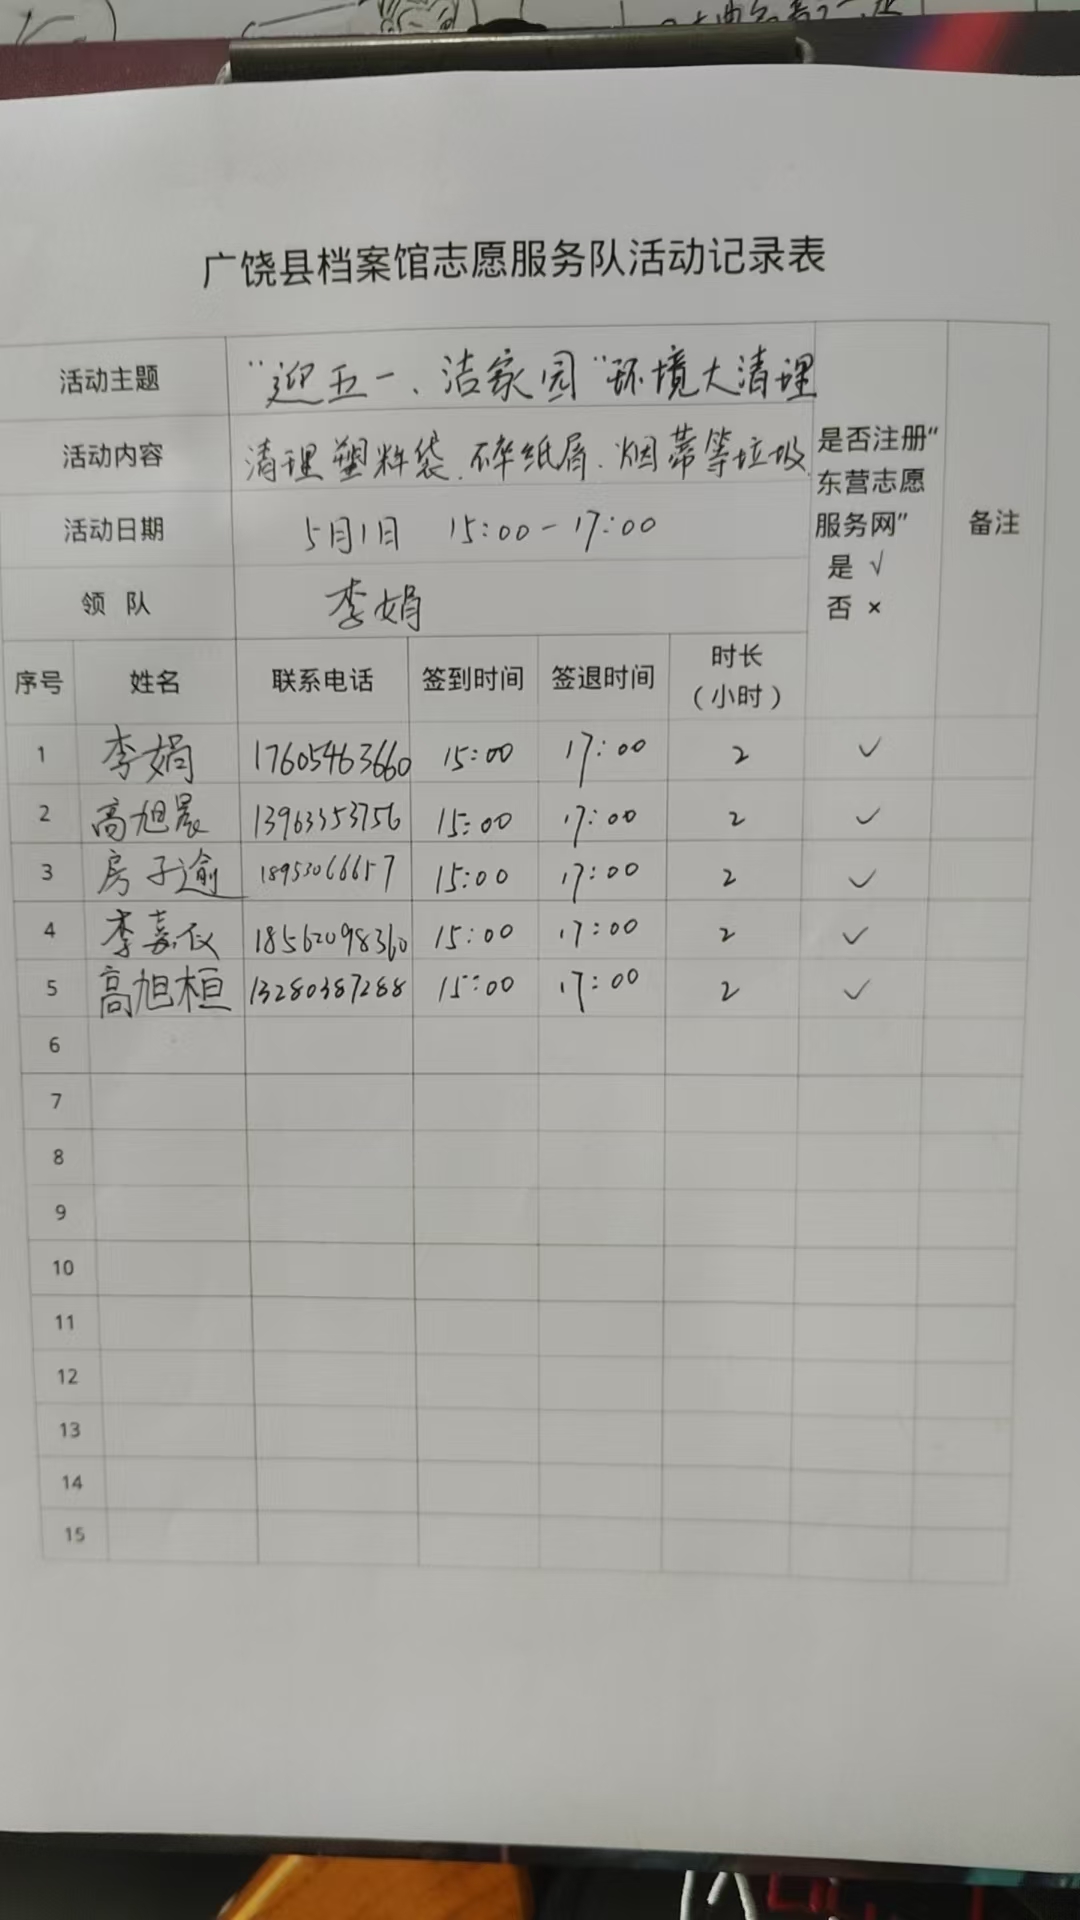 广饶县档案馆志愿服务队活动记录表
活动主题 “迎五一、洁家园”环境大清理
活动内容 清理塑料袋、碎纸屑、烟蒂等垃圾.
活动日期 5月1日 15:00-17:00
领 队 李娟
是否注册“
东营志愿
服务网”
是 √
否 ×
备注
序号 姓名 联系电话 签到时间 签退时间 时长
（小时）
1 李娟 17605463660 15:00 17:00 2 ✓
2 高旭晨 13963353756 15:00 17:00 2 ✓
3 房子逾 18953066657 15:00 17:00 2 ✓
4 李嘉仪 18562098360 15:00 17:00 2 ✓
5 高旭桓 13280387288 15:00 17:00 2 ✓
6
7
8
9
10
11
12
13
14
15